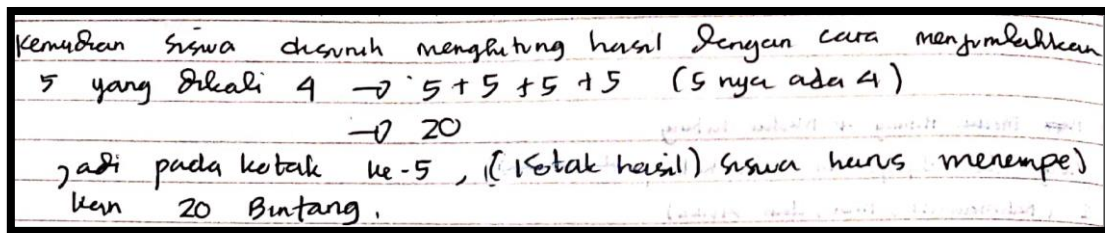 Kemudian siswa disuruh menghitung hasil dengan cara menjumlahkan
5 yang dikali 4 → 5 + 5 + 5 + 5 (5 nya ada 4)
→ 20
Jadi pada kotak ke-5, (Kotak hasil) siswa harus menempel
kan 20 Bintang.